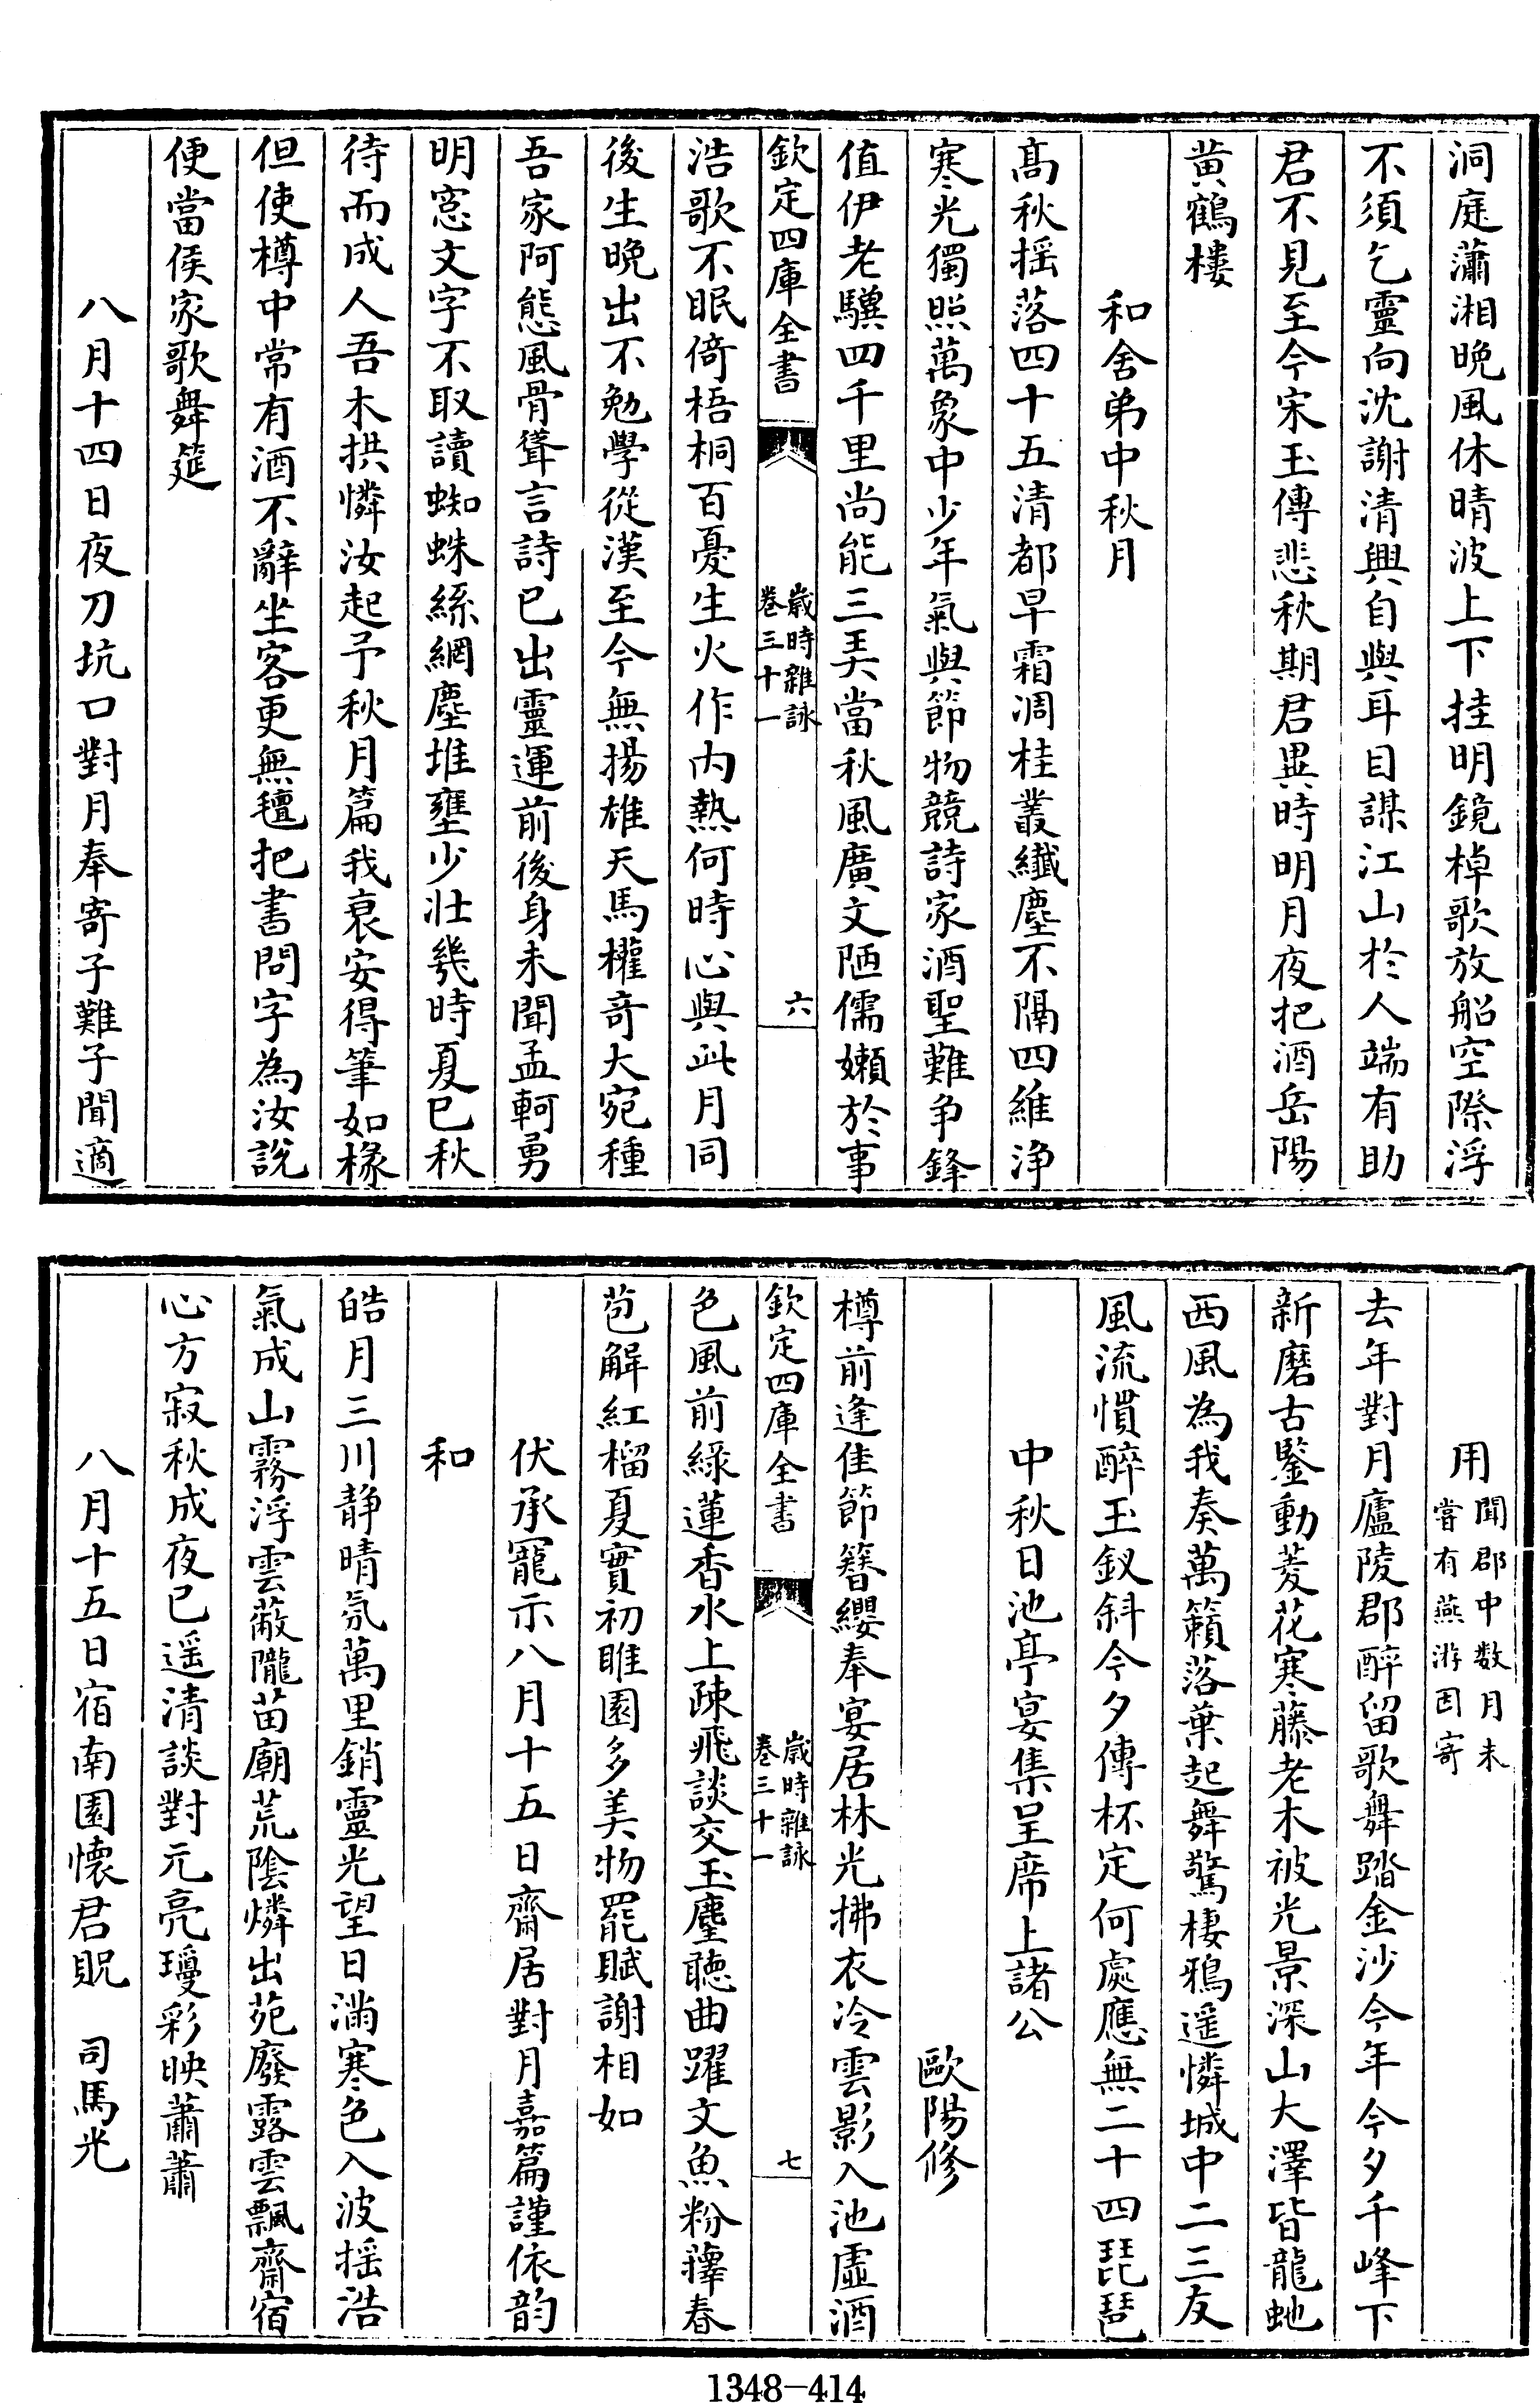 洞庭瀟湘晚風休晴波上下挂明鏡棹歌放船空際浮
不須乞靈向沈謝清興自與耳目謀江山於人端有助
君不見至今宋玉傳悲秋期君異時明月夜把酒岳陽
黃鶴樓
和舍弟中秋月
高秋揺落四十五清都早霜凋桂叢纖塵不隔四維浄
寒光獨照萬象中少年氣與節物競詩家酒聖難争鋒
值伊老驥四千里尚能三美當秋風廣文陋儒嬾於事
欽定四庫全書
歲時雜詠
卷三十一
六
浩歌不眠倚梧桐百憂生火作内熱何時心與此月同
後生晚出不勉學從漢至今無揚雄天馬權奇大宛種
吾家阿熊風骨聳言詩已出靈運前後身未聞孟軻勇
明窓文字不取讀蜘蛛絲網塵堆壅少壯幾時夏已秋
待而成人吾木拱憐汝起予秋月篇我衰安得筆如椽
但使樽中常有酒不辭坐客更無氊把書問字為汝說
便當侯家歌舞筵
八月十四日夜刀坑口對月奉寄子難子聞適
用
聞郡中数月未
嘗有燕游因寄
去年對月廬陵郡醉留歌舞踏金沙今年今夕千峰下
新磨古鑒動菱花寒藤老木被光景深山大澤皆龍虵
西風為我奏萬籟落葉起舞驚棲鴉遥憐城中二三友
風流慣醉玉釵斜今夕傳杯定何處應無二十四琵琶
中秋日池亭宴集呈席上諸公
歐陽修
樽前逢佳節簪纓奉宴居林光拂衣冷雲影入池虛酒
欽定四庫全書
歲時雜詠
卷三十一
七
色風前綠蓮香水上疎飛談交玉麈聴曲躍文魚粉籜春
苞解紅榴夏實初睢園多美物罷賦謝相如
伏承寵示八月十五日齋居對月嘉篇謹依韵
和
皓月三川静晴氛萬里銷靈光望日滿寒色入波揺浩
氣成山霧浮雲蔽隴苗廟荒隂燐出苑廢露雲飄齋宿
心方寂秋成夜已遥清談對元亮瓊彩映蕭蕭
八月十五日宿南園懐君貺 司馬光
1348-414